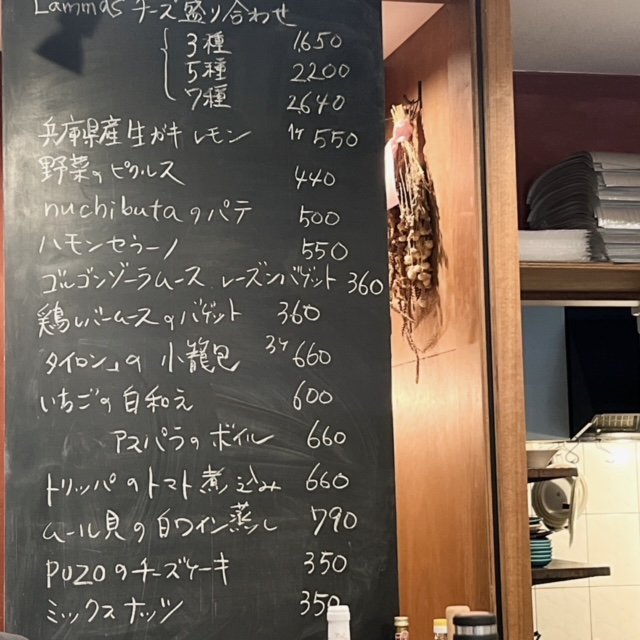 Lammas チーズ盛り合わせ
3種 1,650
5種 2200
7種 2640
兵庫県産生ガキ レモン 1ケ 550
野菜のピクルス 440
nuchibutaのパテ 500
ハモンセラーノ 550
ゴルゴンゾーラムース レーズンバゲット 360
鶏レバームースのバゲット 360
タイロンの 小籠包 3ケ 660
いちごの白和え 600
アスパラのボイル 660
トリッパのトマト煮込み 660
ムール貝の白ワイン蒸し 790
PUZOのチーズケーキ 350
ミックスナッツ 350